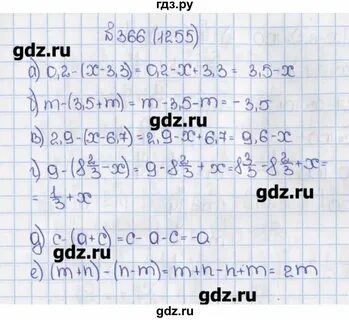 гдз.ру
№366 (1255)
gdz.ru
gdz.ru
а) 0,2-(x-3,3)=0,2-x+3,3= 3,5-x
б) m-(3,5+m)= m-3,5-m= -3,5
в) 2,9-(x-6,7)=2,9-x+6,7= 9,6-x
gdz.ru
gdz.ru
г) 9-(8 2/3-x)=9-8 2/3+x=8 3/3-8 2/3+x=
= 1/3+x
gdz.ru
gdz.ru
д) c-(a+c)=c-a-c=-a
е) (m+n)-(n-m)=m+n-n+m= 2m
gdz.ru
gdz.ru